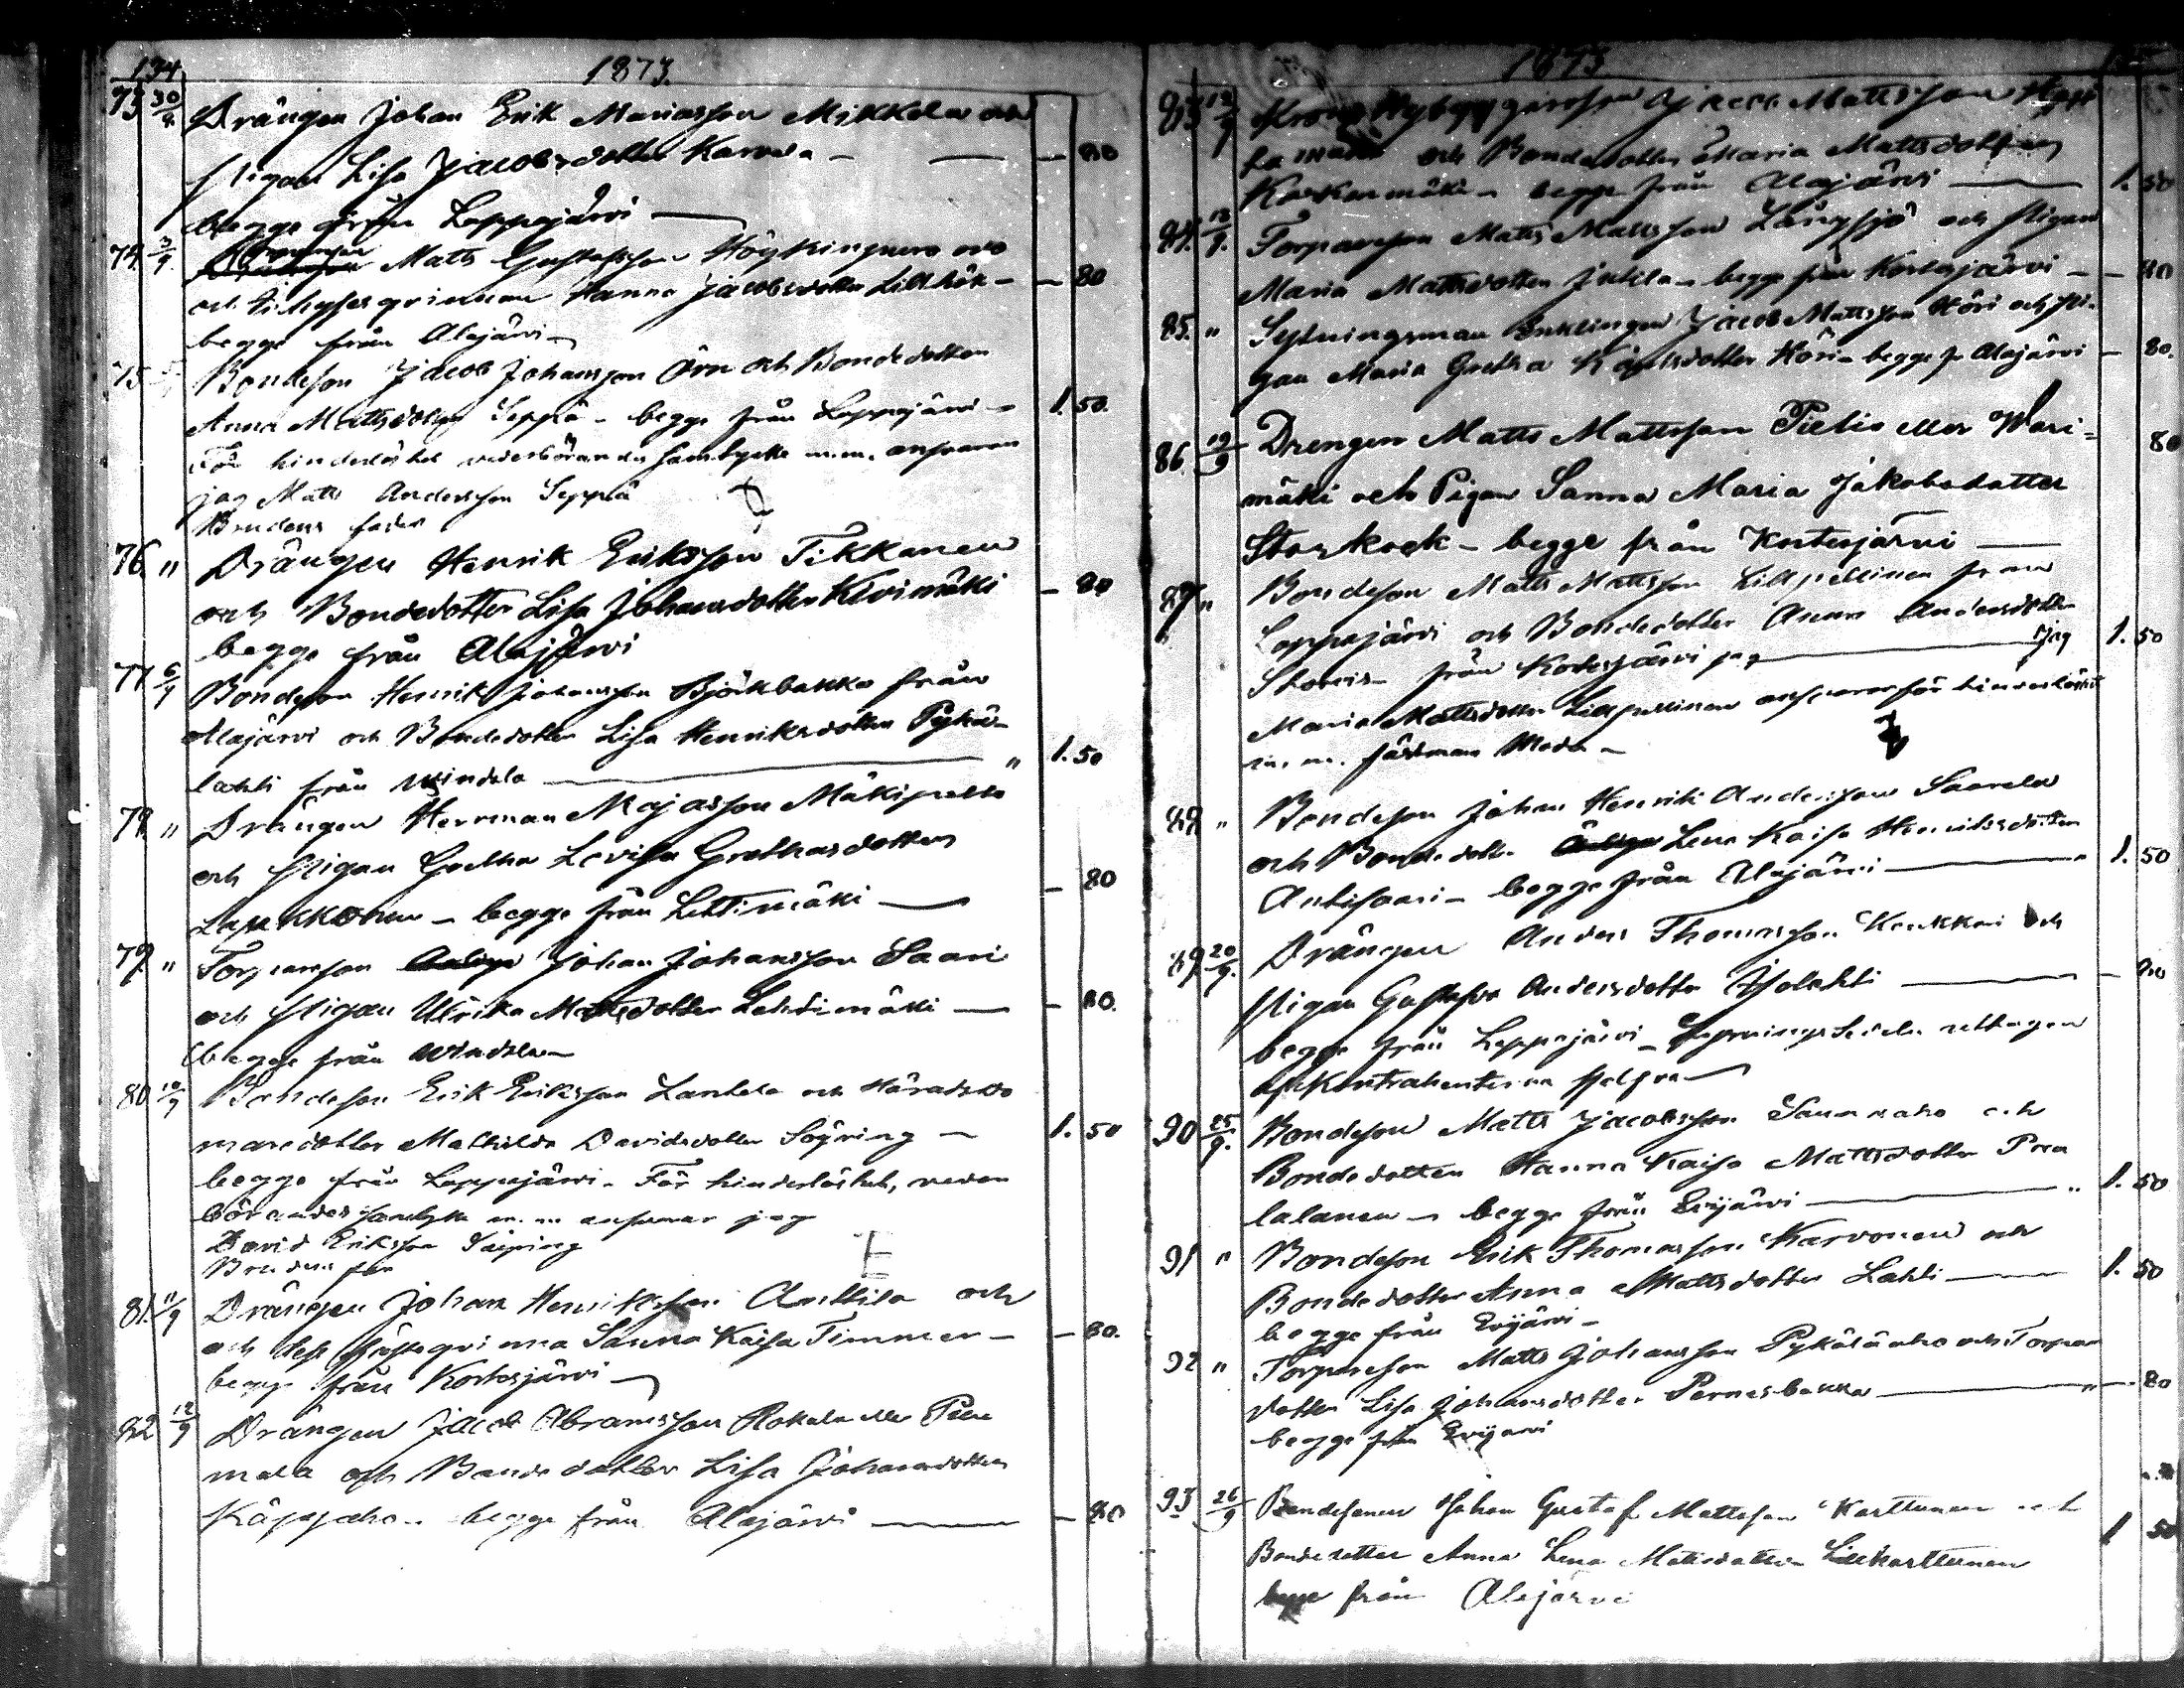 134
1873.
73 30/8 Drängen Johan Erik Mariasson Mikkela och
Pigan Lisa Jacobsdotter Karvala — — 80
begge från Lappajärvi —
74. 3/9. Matts Gustafsson Högkingpuro
och Hanna Jacobsdotter Lillhök — — 80
begge från Alajärvi
75 Bondeson Jacob Johansson Örn och Bondedotter
Anna Mattsdotter Seppä - begge från Lappajärvi — 1. 50.
För hinderlöshet vederbörandes samtycke m.m. ansvarar
jag Matts Andersson Seppä
Brudens fader
76. " Drängen Henrik Eriksson Tikkanen
och Bondedotter Lisa Johansdotter Kivimäki — 80
begge från Alajärvi
77 6/9 Bondeson Henrik Johansson Björkbakka från
Alajärvi och Bondedotter Lisa Henriksdotter Pykä-
lahti från Windala — " 1. 50
78. " Drängen Herrman Majasson Mäkipelto
och Pigan Gretha Lovisa Grethasdotter
— begge från Lehtimäki — — 80
79. " Torpareson Johan Johansson Saari
och Pigan Ulrika Mattsdotter Lehtimäki — — 80.
begge från Windala
80 10/9 Bondeson Erik Eriksson Lantela och Härads
maredotter Mathilda Davidsdotter — 1. 50
begge från Lappajärvi. För hinderlöshet, veder
börandes samtycke m. m. ansvarar jag
David Eriksson
Brudens far
81. 11/9 Drängen Johan Henriksson Anttila och
och dess fästeqvinna Sanna Kaisa Timmer — — 80.
begge från Kortesjärvi
82 12/9 Drängen Jacob Abramsson Rokala eller
och Bondedotter Lisa Johansdotter
Käpyaho — begge från Alajärvi — — 80
1873
83 12/9 Jacob Mattsson
och Bondedotter Maria Mattsdotter
Koskenmäki — begge från Alajärvi — 1. 50
84. 12/9. Torpareson Matts Mattsson Långsjö och Pigan
Maria Mattsdotter Jukkla — begge från Kortesjärvi — — 80
85. " Sytningsman Enklingen Jacob Mattsson Höri och Pi-
gan Maria Gretha Höri — begge fr Alajärvi — 80.
86. 19/9 Drengen Matts Mattsson Pielis eller Wari=
80
mäki och Pigan Sanna Maria Jakobsdotter
Storkock — begge från Kortesjärvi —
87 " Bondeson Matts Mattsson Lillpellinen från
Lappajärvi och Bondedotter Anna Andersdotter
från Kortesjärvi — Jag 1. 50
Maria Mattsdotter Lillpellinen ansvarar för hinderlöshet
m. m. fästmans Moder —
88 " Bondeson Johan Henrik Andersson Saarela
och Bondedotter Lena Kaisa Henriksdotter
Antisaari — begge från Alajärvi — " 1. 50
89 20/9. Drängen Anders Thomasson Kaukkari och
Pigan Gustafva Andersdotter Isolahti — — 80
begge från Lappajärvi — Lysningssedeln uttagen
af kontrahenterna sjelfva
90 25/9. Bondeson Matts Jacobsson Saunaaho och
Bondedotter Hanna Kaisa Mattsdotter
begge från Evijärvi — " 1. 50
91 " Bondeson Erik Thomasson Karvonen och
Bondedotter Anna Mattsdotter Lahti — 1. 50
begge från Evijärvi —
92 " Torpareson Matts Johansson Pykäläaho och Torpar
dotter Lisa Johansdotter Pernesbacka — " — 80
begge från Evijärvi
93 26/9 Bondesonen Johan Gustaf Mattsson Karttunen och
Bondedotter Anna Lena Mattsdotter Lillkarttunen 1 50
begge från Alajärvi